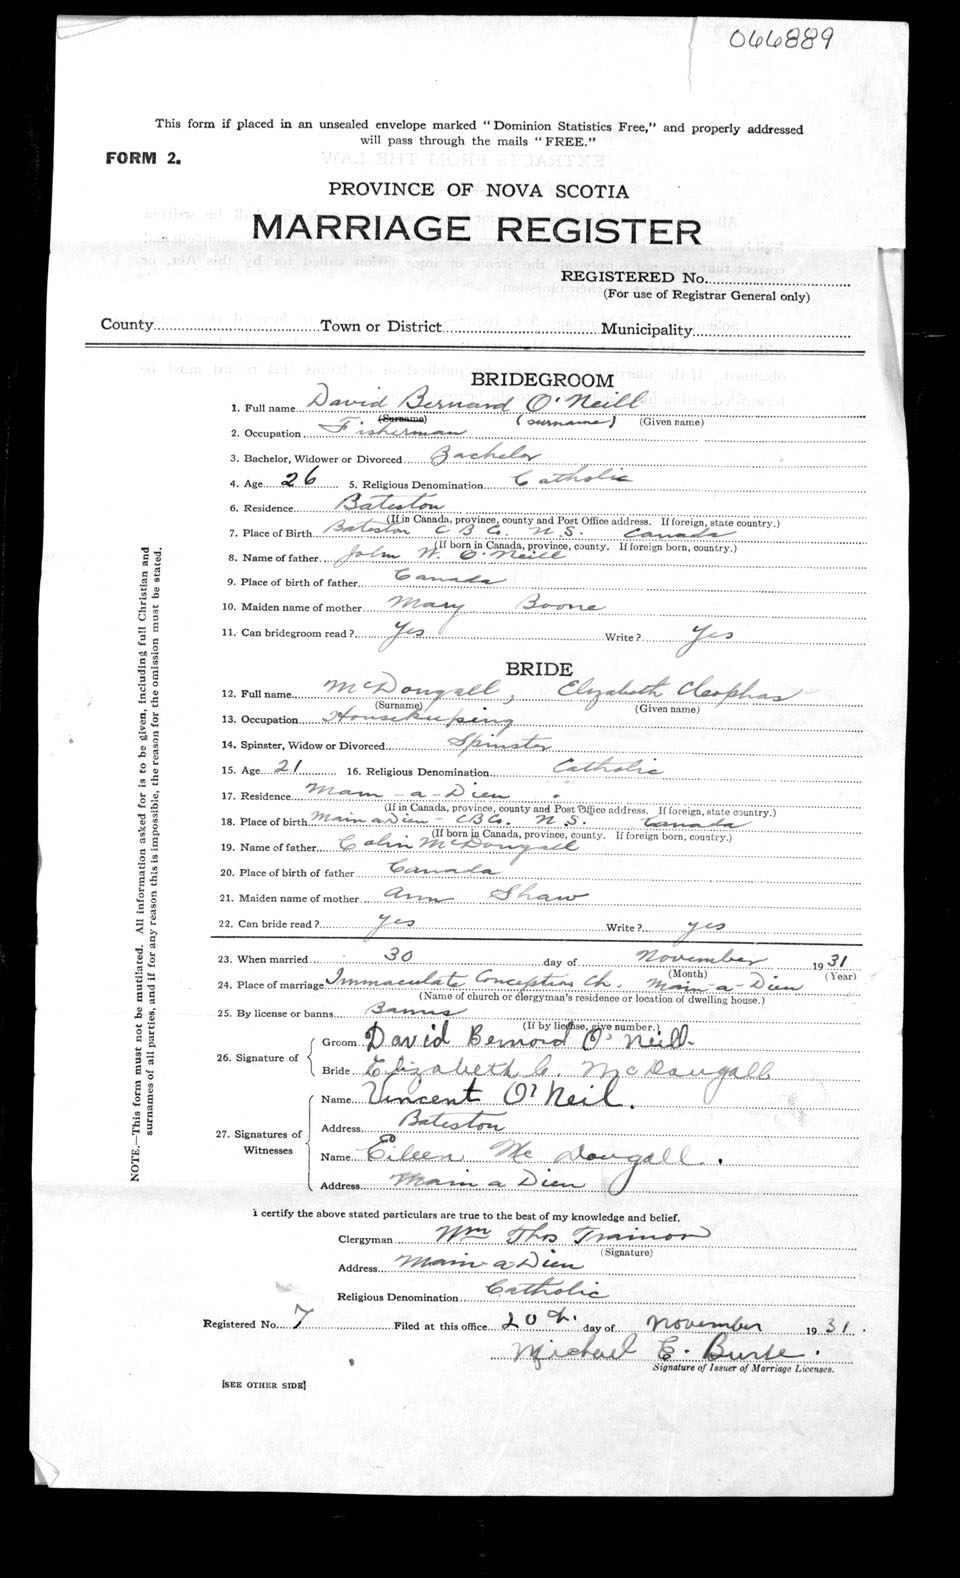 066889
This form if placed in an unsealed envelope marked "Dominion Statistics Free," and properly addressed
will pass through the mails "FREE."
FORM 2.
PROVINCE OF NOVA SCOTIA
MARRIAGE REGISTER
REGISTERED No.
(For use of Registrar General only)
County Town or District Municipality
BRIDEGROOM
1. Full name David Bernard O'Neill
(Surname) (surname) (Given name)
2. Occupation Fisherman
3. Bachelor, Widower or Divorced Bachelor
4. Age 26 5. Religious Denomination Catholic
6. Residence Bateston
(If in Canada, province, county and Post Office address. If foreign, state country.)
7. Place of Birth Bateston C B Co. N. S. Canada
(If born in Canada, province, county. If foreign born, country.)
8. Name of father John W. O'Neill
9. Place of birth of father Canada
10. Maiden name of mother Mary Boone
11. Can bridegroom read? Yes Write? Yes
BRIDE
12. Full name McDougall, Elizabeth Cleophas
(Surname) (Given name)
13. Occupation Housekeeping
14. Spinster, Widow or Divorced Spinster
15. Age 21 16. Religious Denomination Catholic
17. Residence Main-a-Dieu
(If in Canada, province, county and Post Office address. If foreign, state country.)
18. Place of birth Main a Dieu - C B Co. N. S. Canada
(If born in Canada, province, county. If foreign born, country.)
19. Name of father Colin McDougall
20. Place of birth of father Canada
21. Maiden name of mother Ann Shaw
22. Can bride read? yes Write? yes
23. When married 30 day of November 1931
(Month) (Year)
24. Place of marriage Immaculate Conception Ch. Main-a-Dieu
(Name of church or clergyman's residence or location of dwelling house.)
25. By license or banns Banns
(If by license, give number.)
26. Signature of Groom David Bernord O'Neill.
Bride Elizabeth C. McDougall
27. Signatures of Witnesses Name Vincent O'Neil.
Address Bateston
Name Eileen McDougall.
Address Main a Dieu
I certify the above stated particulars are true to the best of my knowledge and belief.
Clergyman Wm Thos Trainor
(Signature)
Address Main-a-Dieu
Religious Denomination Catholic
Registered No. 7 Filed at this office 20th. day of November 1931.
Michael E. Burke.
Signature of Issuer of Marriage Licenses.
[SEE OTHER SIDE]
NOTE.—This form must not be mutilated. All information asked for is to be given, including full Christian and
surnames of all parties, and if for any reason this is impossible, the reason for the omission must be stated.